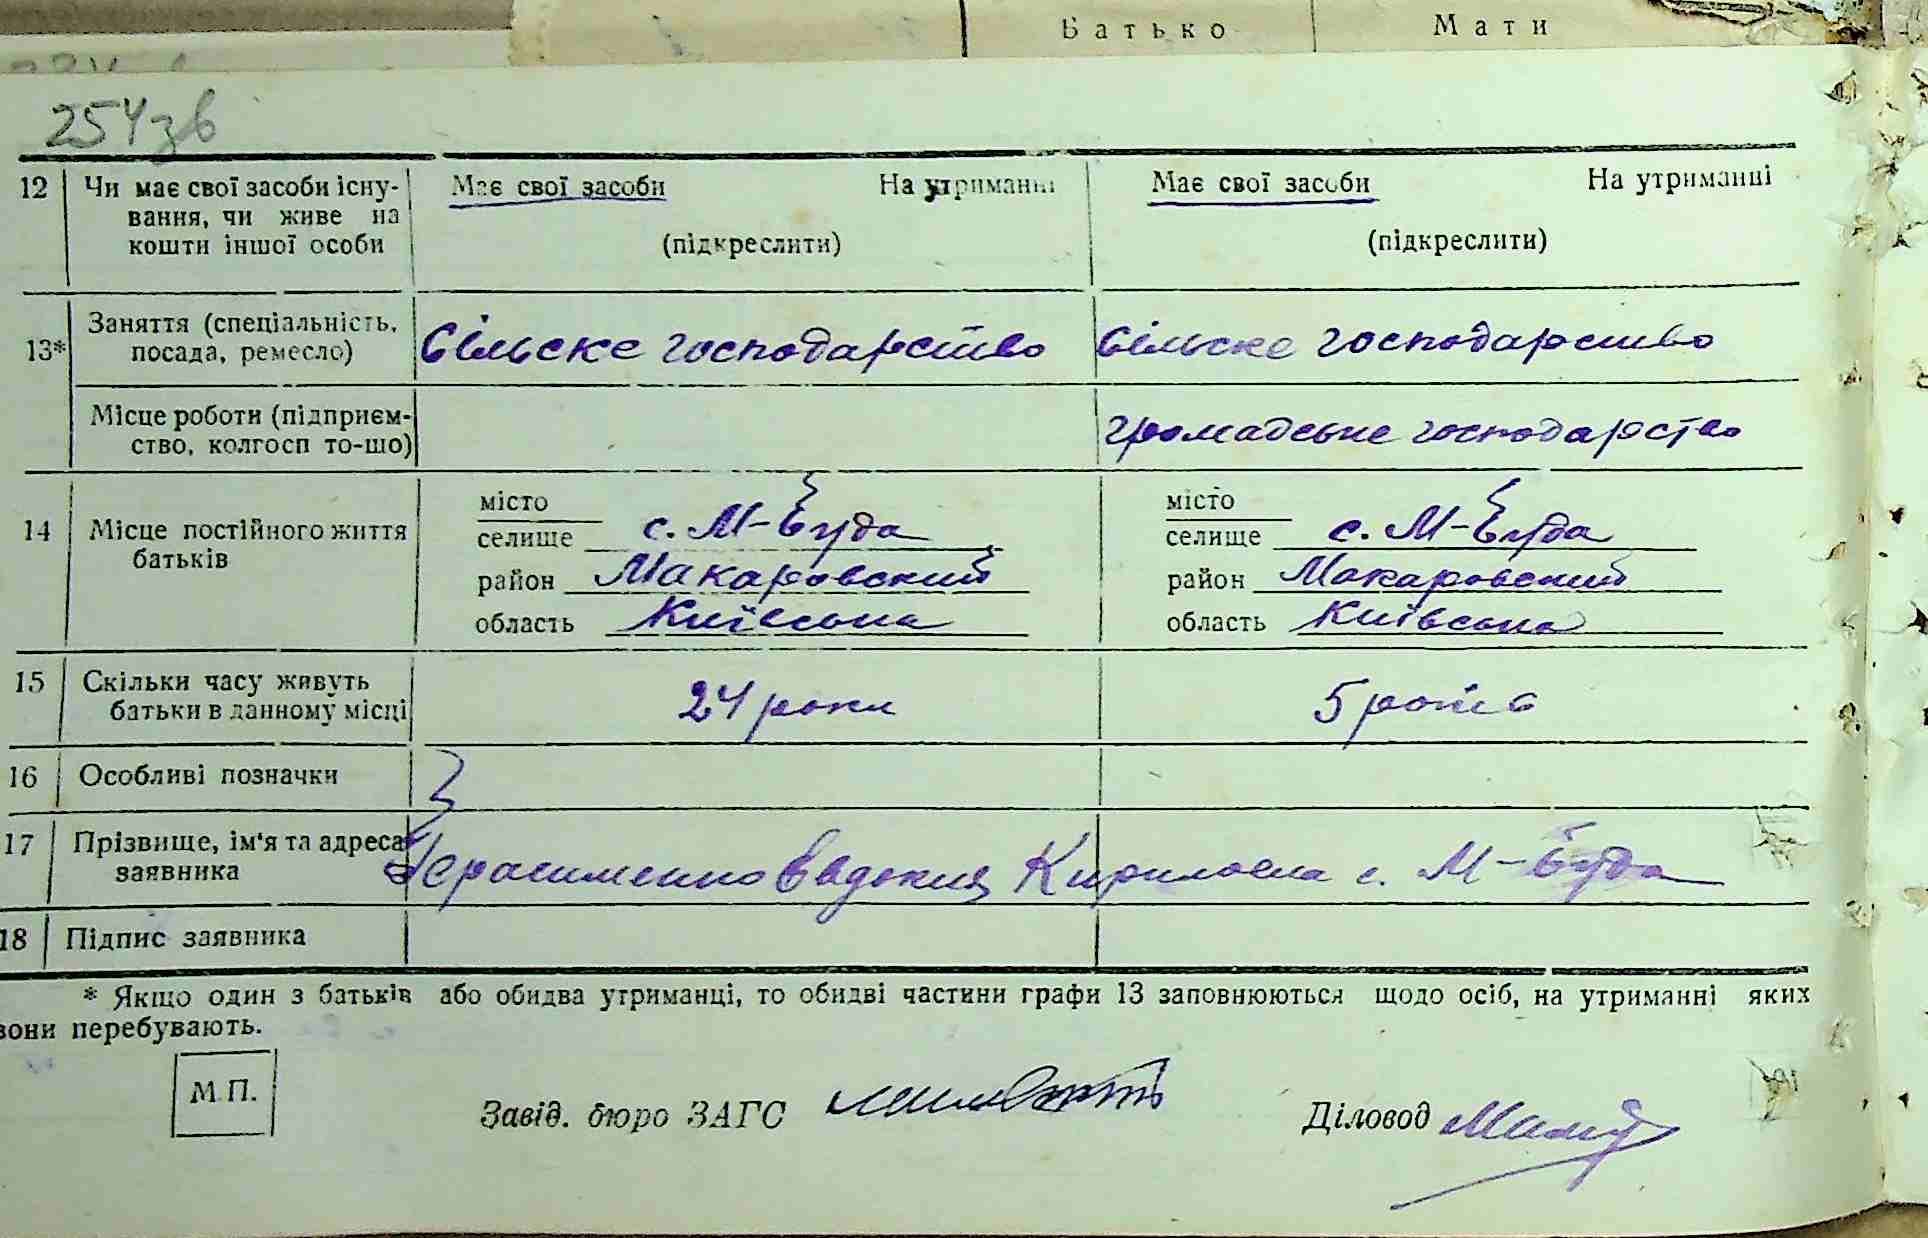 Батько Мати
254зв
12 Чи має свої засоби існу- Має свої засоби На утриманні Має свої засоби На утриманні
вання, чи живе на
кошти іншої особи (підкреслити) (підкреслити)
13* Заняття (спеціальність,
посада, ремесло) Сільске господарство Сільске господарство
Місце роботи (підприєм-
ство, колгосп то-що) громадське господарство
14 Місце постійного життя
батьків
місто місто
селище с. М-Буда селище с. М-Буда
район Макаровский район Макаровский
область Київська область Київська
15 Скільки часу живуть
батьки в данному місці 24 роки 5 років
16 Особливі позначки
17 Прізвище, ім'я та адреса
заявника Герасименко Євдокия Кириловна с. М-Буда
18 Підпис заявника
* Якщо один з батьків або обидва утриманці, то обидві частини графи 13 заповнюються щодо осіб, на утриманні яких
вони перебувають.
М.П.
Завід. бюро ЗАГС Діловод